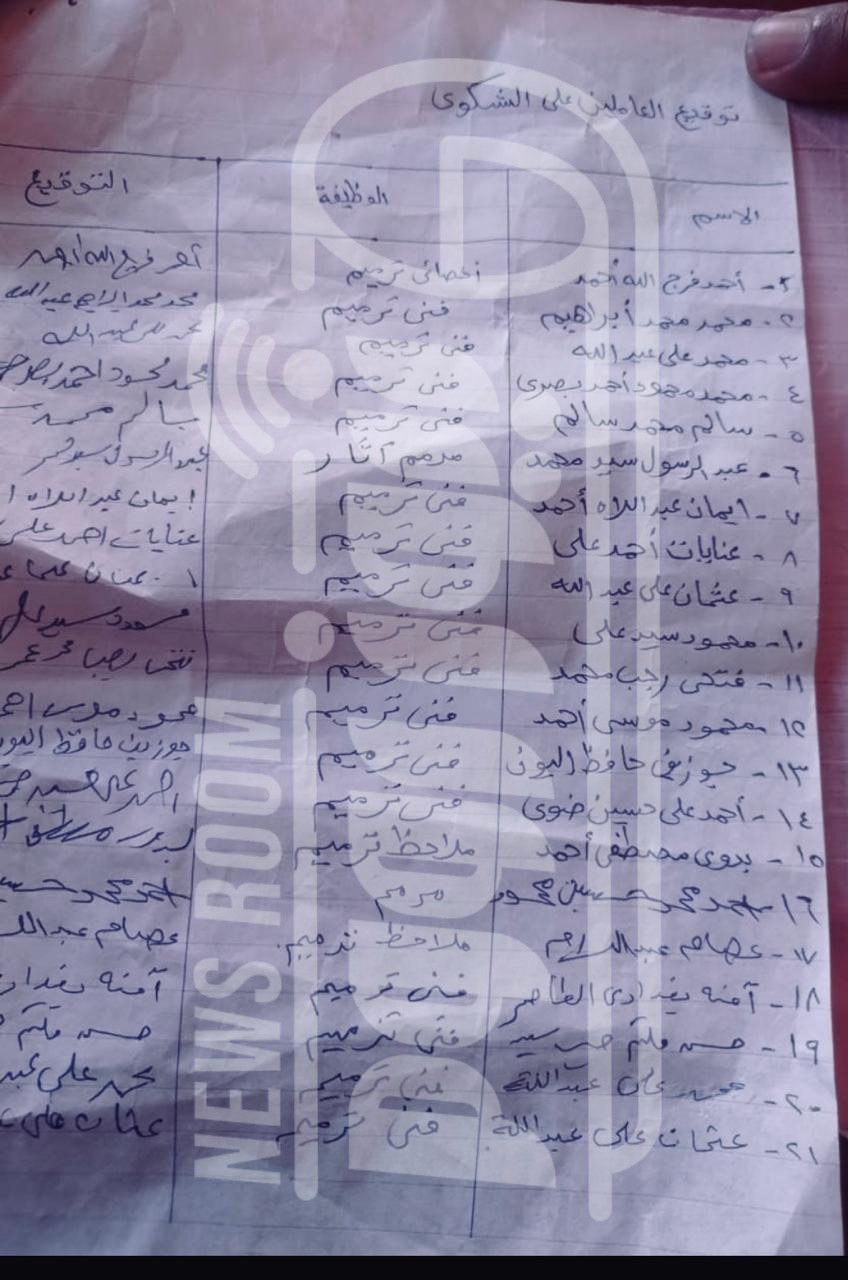 توقيع العاملين على الشكوى
الاسم الوظيفة التوقيع
٢- أحمد فرج الله أحمد أخصائى ترميم أحمد فرج الله أحمد
٢- محمد محمد أبراهيم فنى ترميم محمد محمد
٣- محمد على عبد الله فنى ترميم عبد الله
٤- محمد محمود أحمد بصرى فنى ترميم محمد محمود احمد
٥- سالم محمد سالم فنى ترميم سالم محمد
٦- عبد الرسول سيد محمد مرمم آثار عبد الرسول سيد
٧- ايمان عبد اللاه أحمد فنى ترميم ايمان عبد اللاه ا
٨- عنايات أحمد على فنى ترميم عنايات احمد على
٩- عثمان على عبد الله فنى ترميم
١٠- محمود سيد على فنى ترميم
١١- فتحى رجب محمد فنى ترميم فتحى
١٢- محمود موسى أحمد فنى ترميم محمود موسى
١٣- حافظ فنى ترميم حافظ
١٤- أحمد على حسين ضوى فنى ترميم
١٥- بدوى مصطفى أحمد ملاحظ ترميم
١٦- احمد محمد حسين محمود مرمم احمد محمد
١٧- عصام عبد السلام ملاحظ ترميم عصام
١٨- آمنه بغدادى الطاهر فنى ترميم آمنه
١٩- حسن فنى ترميم حسن
٢٠- محمد على عبد الله فنى ترميم محمد على عبد
٢١- عثمان على عبد الله فنى ترميم عثمان على
NEWS ROOM